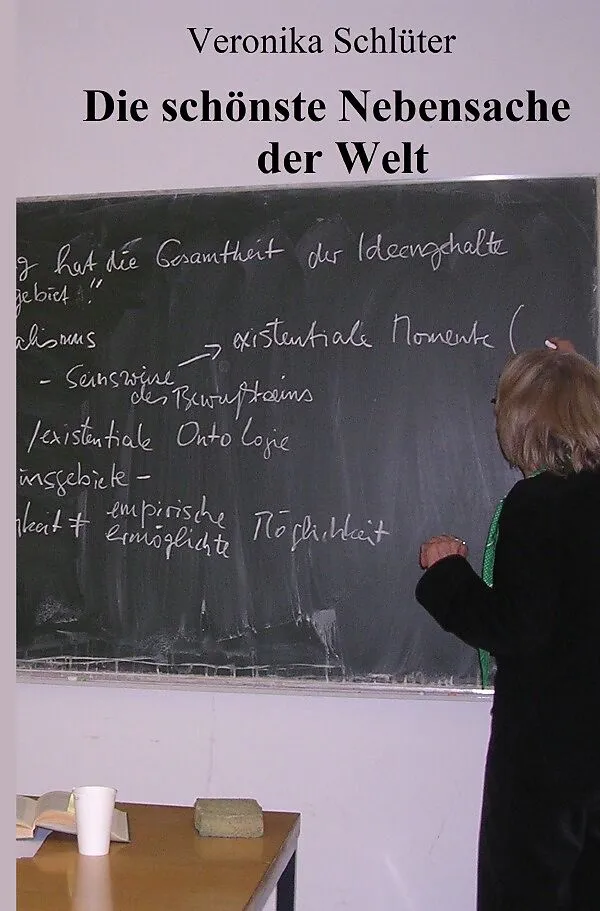 Veronika Schlüter
Die schönste Nebensache
der Welt
g hat die Gesamtheit der Ideengehalte
gebiet."
alismus
→ existentiale Momente (
- Seinsweise
des Bewußtseins
/existentiale Ontologie
insgebiete -
keit ≠ empirische
ermöglichte Möglichkeit